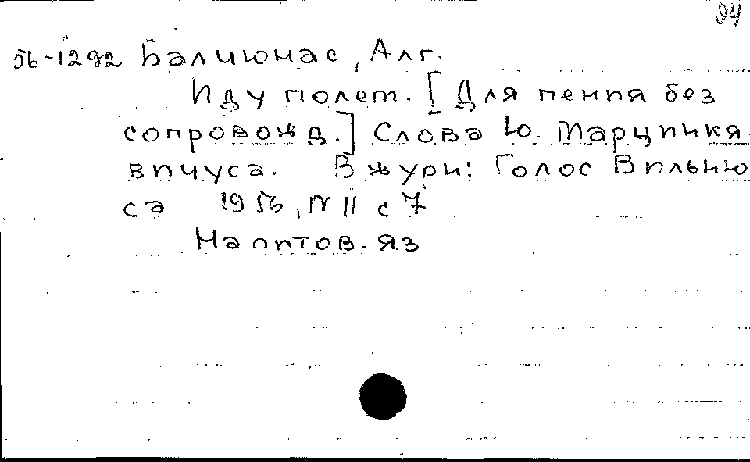 94
56-1292 Балиюнас, Алг.
Иду полем. [Для пения без
сопровожд.] Слова Ю. Марцинкя
вичуса. В журн: Голос Вильню
са 1956, N 11 с 7
На литов. яз